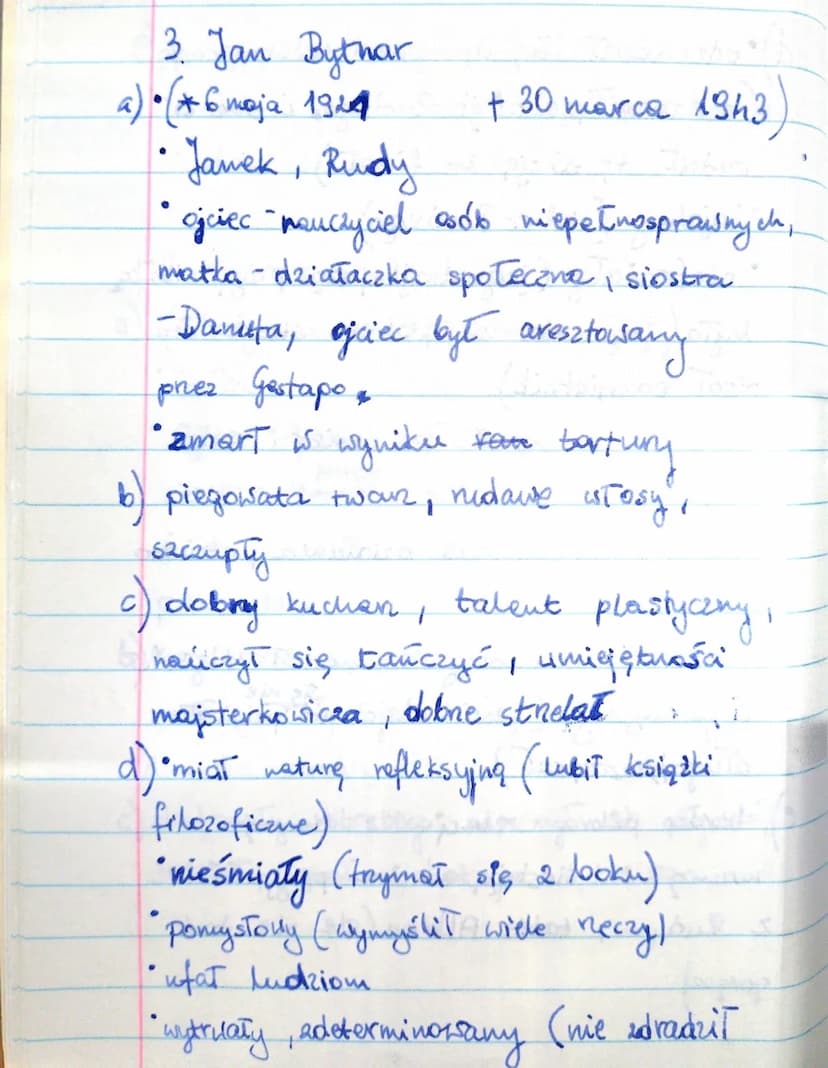 3. Jan Bytnar
a) • (* 6 maja 1921 † 30 marca 1943)
• Janek, Rudy
• ojciec - nauczyciel osób niepełnosprawnych,
matka - działaczka społeczna, siostra
- Danuta, ojciec był aresztowany
przez Gestapo.
• zmarł w wyniku ran tortury
b) piegowata twarz, rudawe włosy,
szczupły
c) dobry kucharz, talent plastyczny,
nauczył się tańczyć, umiejętności
majsterkowicza, dobrze strzelał
d) • miał naturę refleksyjną (lubił książki
filozoficzne)
• nieśmiały (trzymał się z boku)
• pomysłowy (wymyślił wiele rzeczy)
• ufał ludziom
• wytrwały, zdeterminowany (nie zdradził